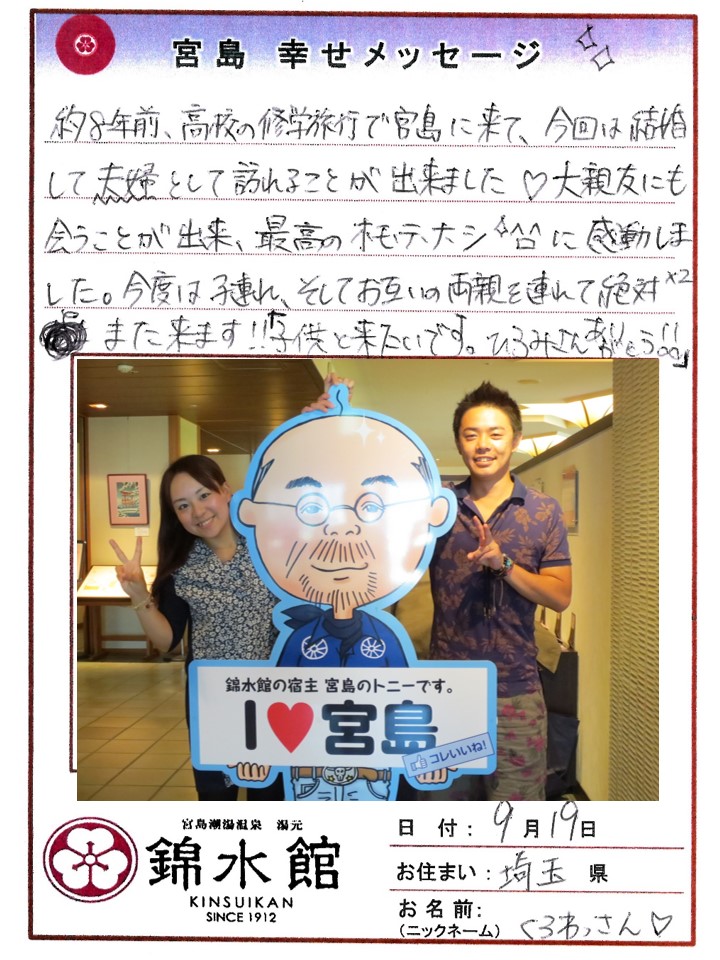 宮島 幸せメッセージ
約8年前、高校の修学旅行で宮島に来て、今回は結婚
して夫婦として訪れることが出来ました♡大親友にも
会うことが出来、最高のオモテナシ^^に感動しま
した。今度は子連れ、そしてお互いの両親を連れて絶対×2
また来ます!!「子供と来たいです。ひろみさんありがとう!!」
錦水館の宿主 宮島のトニーです。
I♥宮島
コレいいね!
宮島潮湯温泉 湯元
錦水館
KINSUIKAN
SINCE 1912
日 付:9月19日
お住まい:埼玉 県
お名前:
(ニックネーム) くろわっさん♡